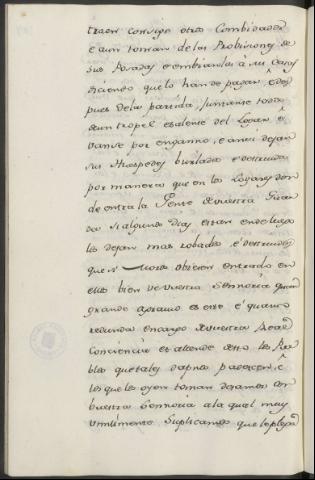 traen consigo otros Combidados
e aun toman de las Probisiones de
sus Posadas e embianlas à sus Casas
diciendo que lo han de pagar, e des
pues de la partida, juntanse todos
de un tropel e salense del Logar e
vanse por enganno, e ansi dejan
sus Huespedes burlados e destruidos
por manera que en los Logares don
de entra la Gente de vuestra Guar
da si algunos dias estan en ellos
los dejan mas robados, e destruidos
que si Moros obiesen entrado en
ellos bien ve vuestra Sennoria quan
grande agravio es este e quanto
redunda en cargo de vuestra Real
Conciencia et allende desto los Pue
blos que tales dapnos padescen, e
los que los oyen toman desamor con
vuestra Sennoria a la qual muy
umilmente Suplicamos que le plega